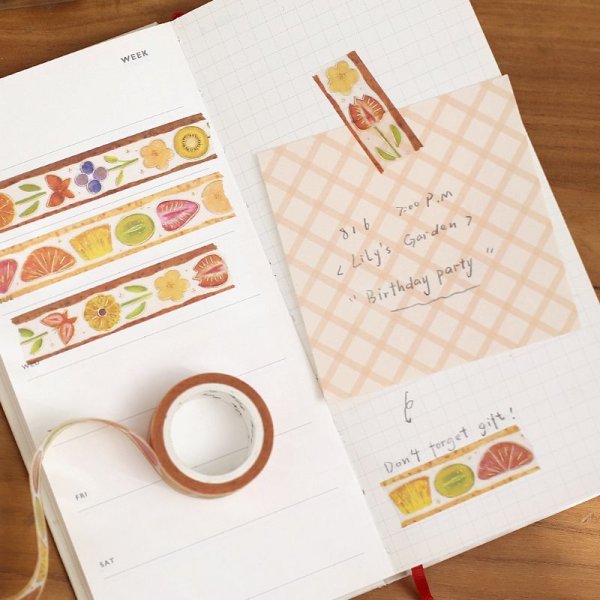 WEEK
WED
FRI
SAT
8/6 7:00 P.M
< Lily's Garden >
"Birthday party"
Don't forget gift!